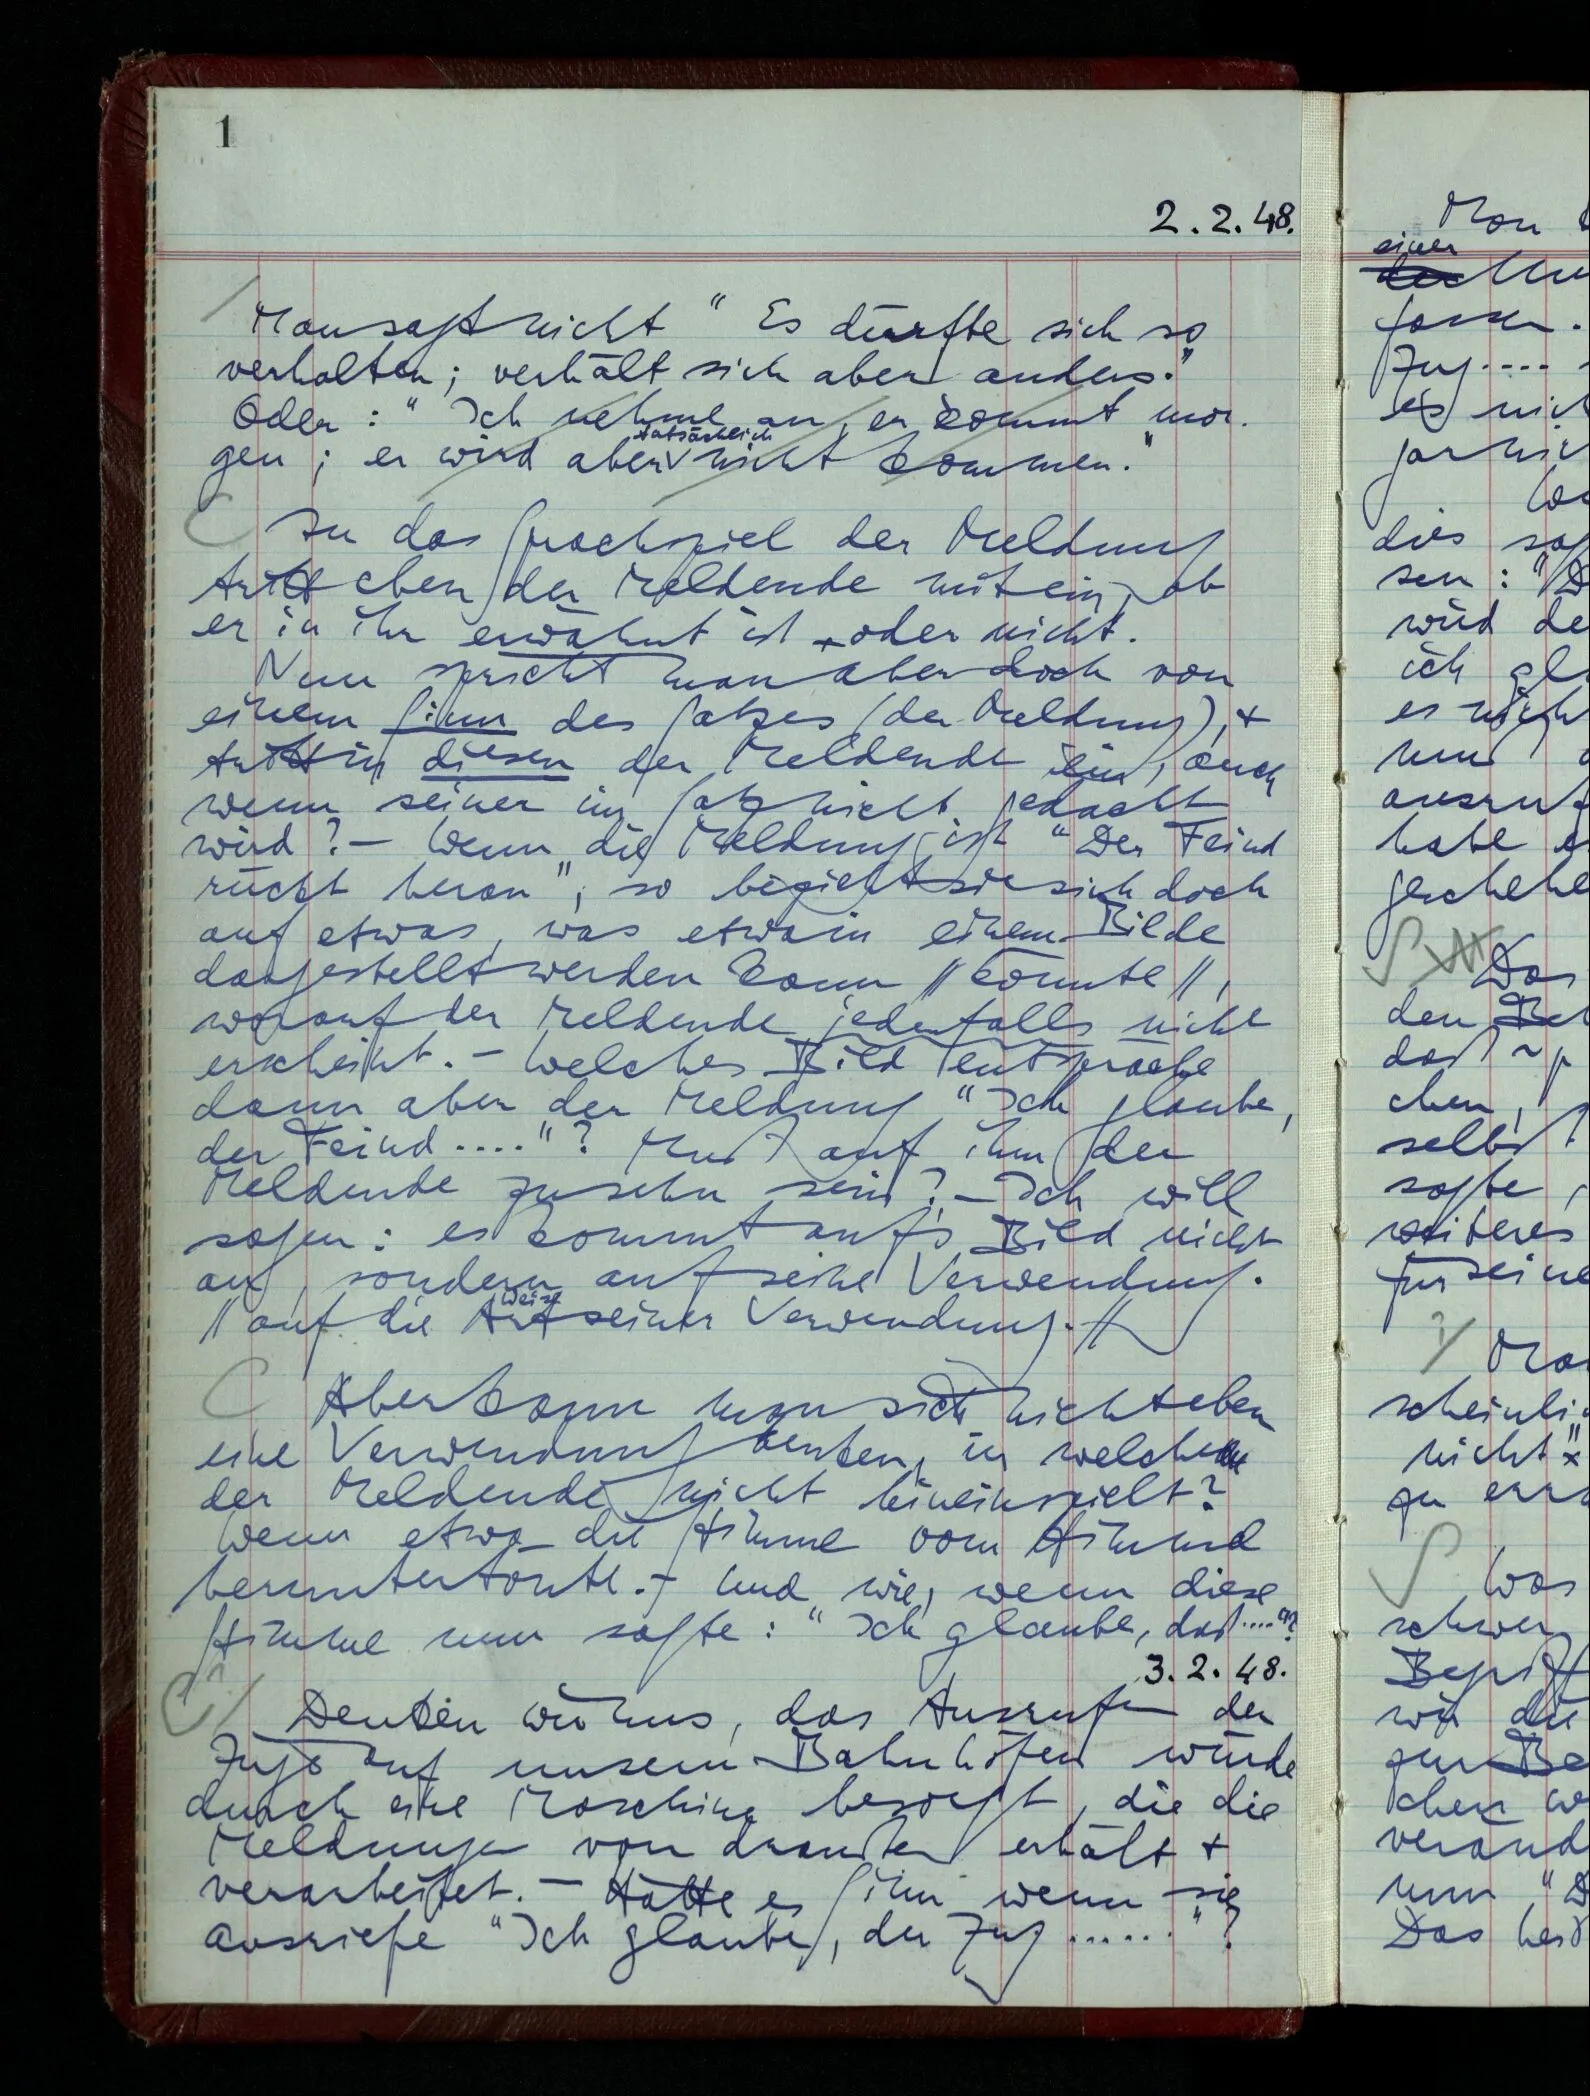 1
2.2.48.
Man sagt nicht "Es dürfte sich so
verhalten; verhält sich aber anders."
Oder: "Ich nehme an, er kommt mor-
gen; er wird aber tatsächlich nicht kommen."
In das Sprachspiel der Meldung
tritt eben der Meldende mit ein, ob
er in ihr erwähnt ist, oder nicht.
Nun spricht man aber doch von
einem Sinn des Satzes (der Meldung), +
tritt in diesen der Meldende ein, auch
wenn seiner im Satz nicht gedacht
wird? – Wenn die Meldung ist "Der Feind
rückt heran", so bezieht sie sich doch
auf etwas, was etwa in einem Bilde
dargestellt werden kann // könnte //,
worauf der Meldende jedenfalls nicht
erscheint. – Welches Bild entspräche
dann aber der Meldung "Ich glaube,
der Feind ...."? Muß auf ihm der
Meldende zu sehn sein? – Ich will
sagen: es kommt auf's Bild nicht
an, sondern auf seine Verwendung.
// auf die Art weise seiner Verwendung. //
Aber kann man sich nicht eben
eine Verwendung denken, in welcher
der Meldende nicht hineinspielt?
Wenn etwa die Stimme vom Himmel
heruntertönte. – Und wie, wenn diese
Stimme nun sagte: "Ich glaube, daß...."?
3.2.48.
Denken wir uns, das Ausrufen der
Züge auf unsern Bahnhöfen würde
durch eine Maschine besorgt, die die
Meldungen von draußen erhält +
verarbeitet. – Hätte es Sinn wenn sie
ausriefe "Ich glaube, der Zug ......"?
Man
einer
der
fassen.
Zug ....
es nich
gar nic
dies sag
sen: "D
wird de
ich gl
es nicht
nun
ausruf
habe
geschehe
Das
den
daß
chen,
selbst
sagte,
weiteres
für seine
Man
scheinli
nicht"
zu
Was
schwer
Begriff
wir die
zur Be
chen
veränd
nun "D
Das heiß